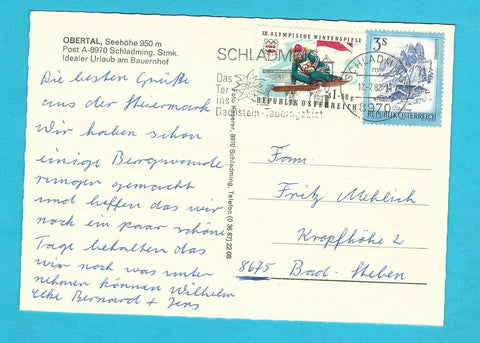 OBERTAL, Seehöhe 950 m
Post A-8970 Schladming, Stmk.
Idealer Urlaub am Bauernhof
Die besten Grüße
aus der Steiermark
Wir haben schon
einige Bergwande
rungen gemacht
und hoffen das wir
noch ein paar schöne
Tage behalten das
wir noch was unter
nehmen können Wilhelm
Elke Bernard + Jens
Foto Kaserer, 8970 Schladming, Telefon (0 36 87) 22 08
SCHLADMING
Das
Tor
ins
Dachstein-Tauerngebiet
XII. OLYMPISCHE WINTERSPIELE
REPUBLIK ÖSTERREICH
SCHLADMING
8970
3 S
REPUBLIK ÖSTERREICH
Fam.
Fritz Mehlich
Kropfhöhe 2
8675 Bad-Steben